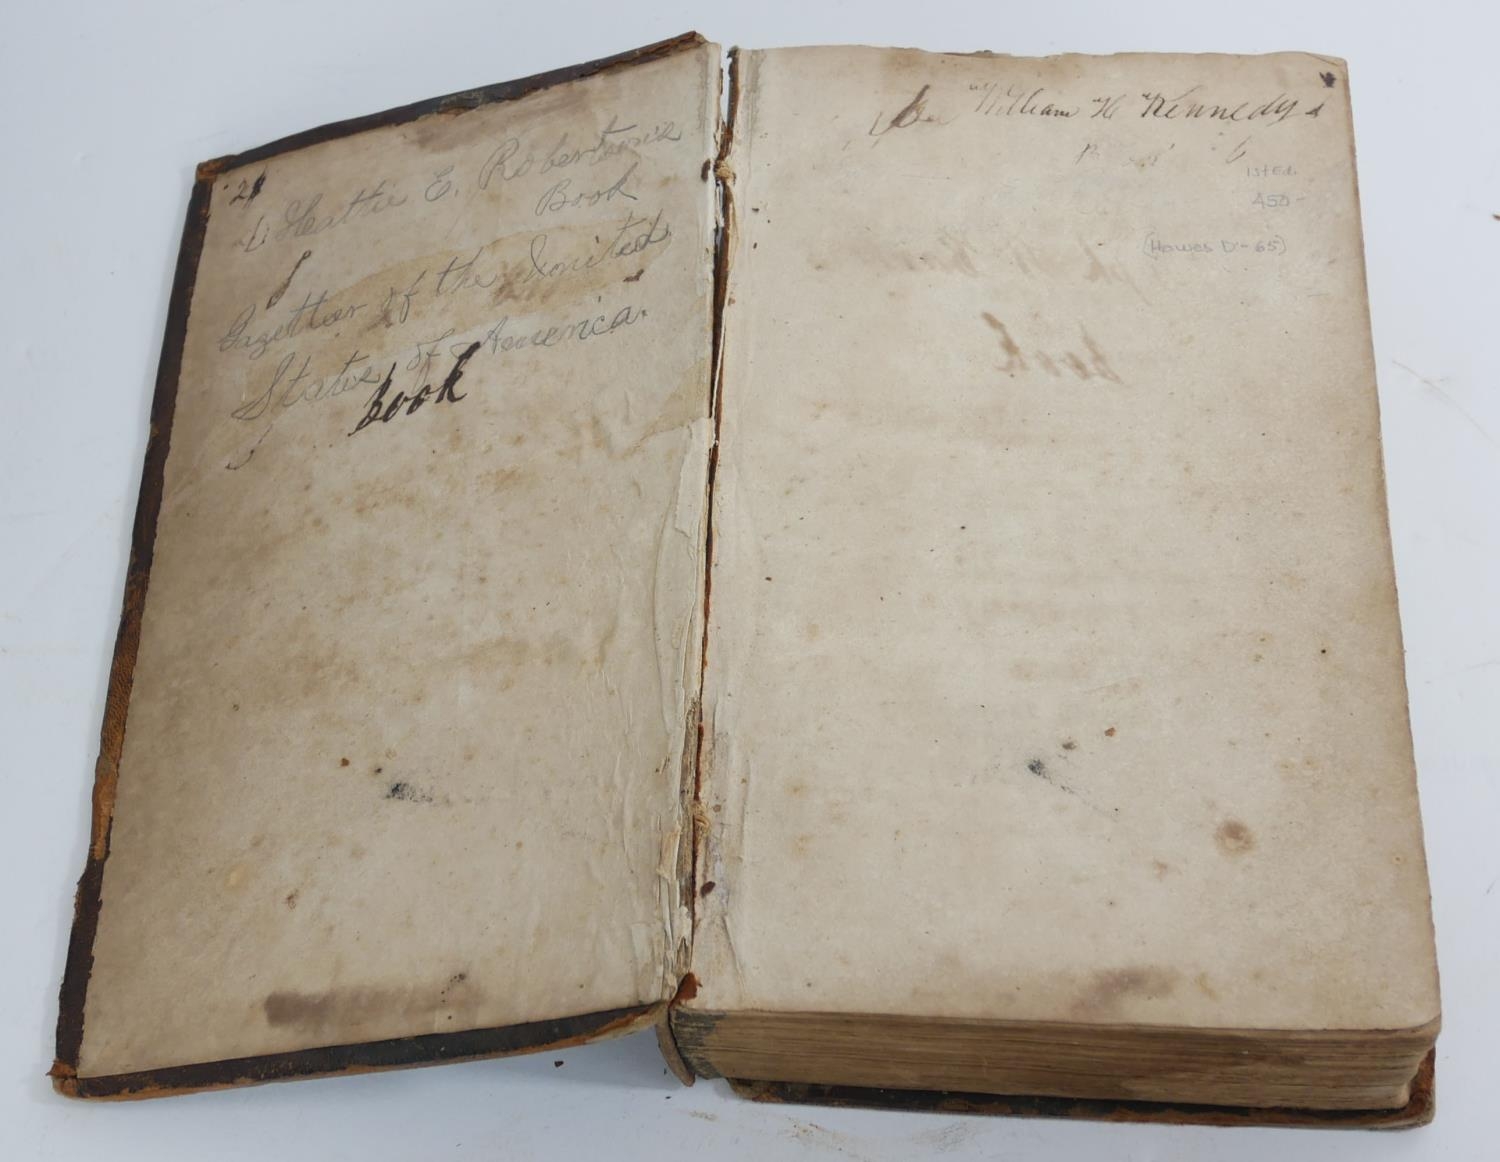 24
Hattie E. Robertson's
Book
Gazetteer of the United
States of America.
book
William H Kennedy
1st Ed.
450-
(Howes D-65)
book